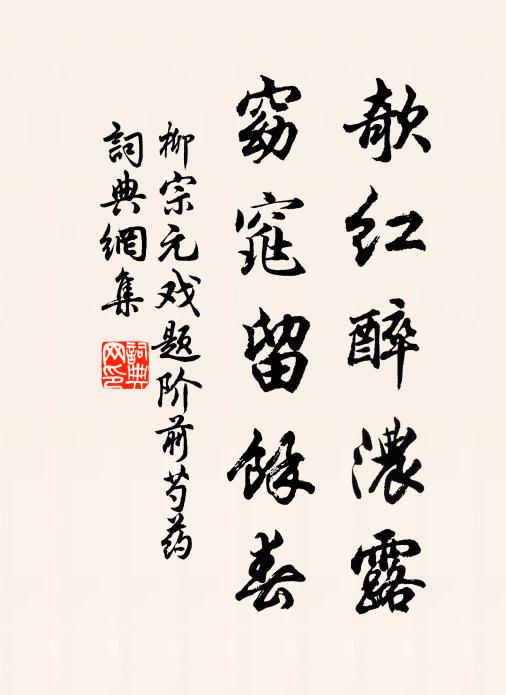 欹红醉濃露
窈窕留餘春
柳宗元戏题阶前芍药
詞典網集
詞典网印